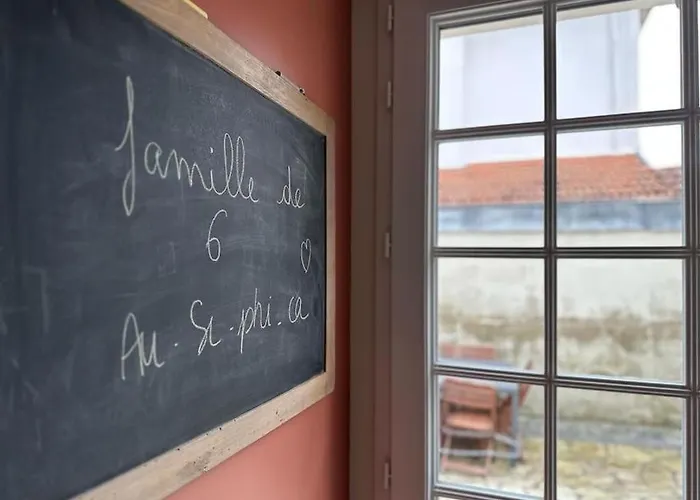 famille de
6 ♡
Au - Se - phi - ca